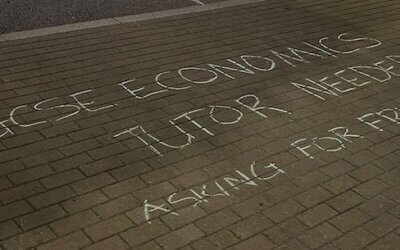 GCSE ECONOMICS
TUTOR NEEDED
ASKING FOR